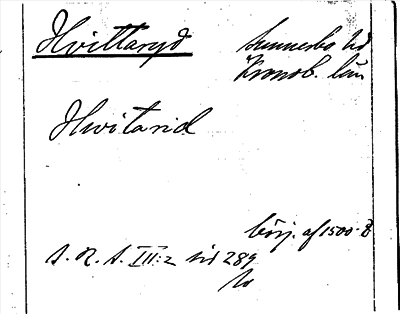 Hvittaryd Sunnerbo hd
Kronob. län
Hwitarid
börj. af 1500-t
S. R. S. III:2 sid 289